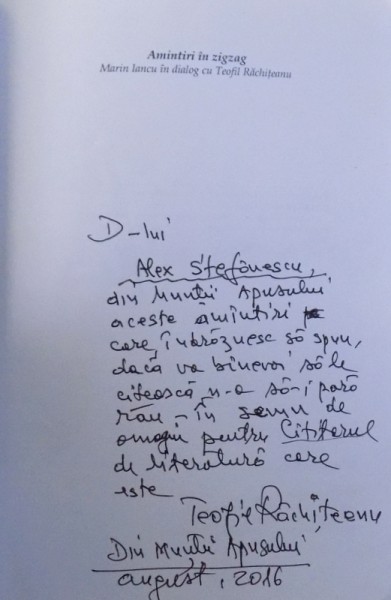 Amintiri în zigzag
Marin Iancu în dialog cu Teofil Răchițeanu
D-lui
Alex Ștefănescu,
din Munții Apusului
aceste amintiri pe
care, îmbrăznesc să spun,
dacă va binevoi să le
citească n-o să-i pară
rău – în semn de
omagiu pentru Cititorul
de literatură care
este
Teofil Răchițeanu
Din Munții Apusului
august, 2016